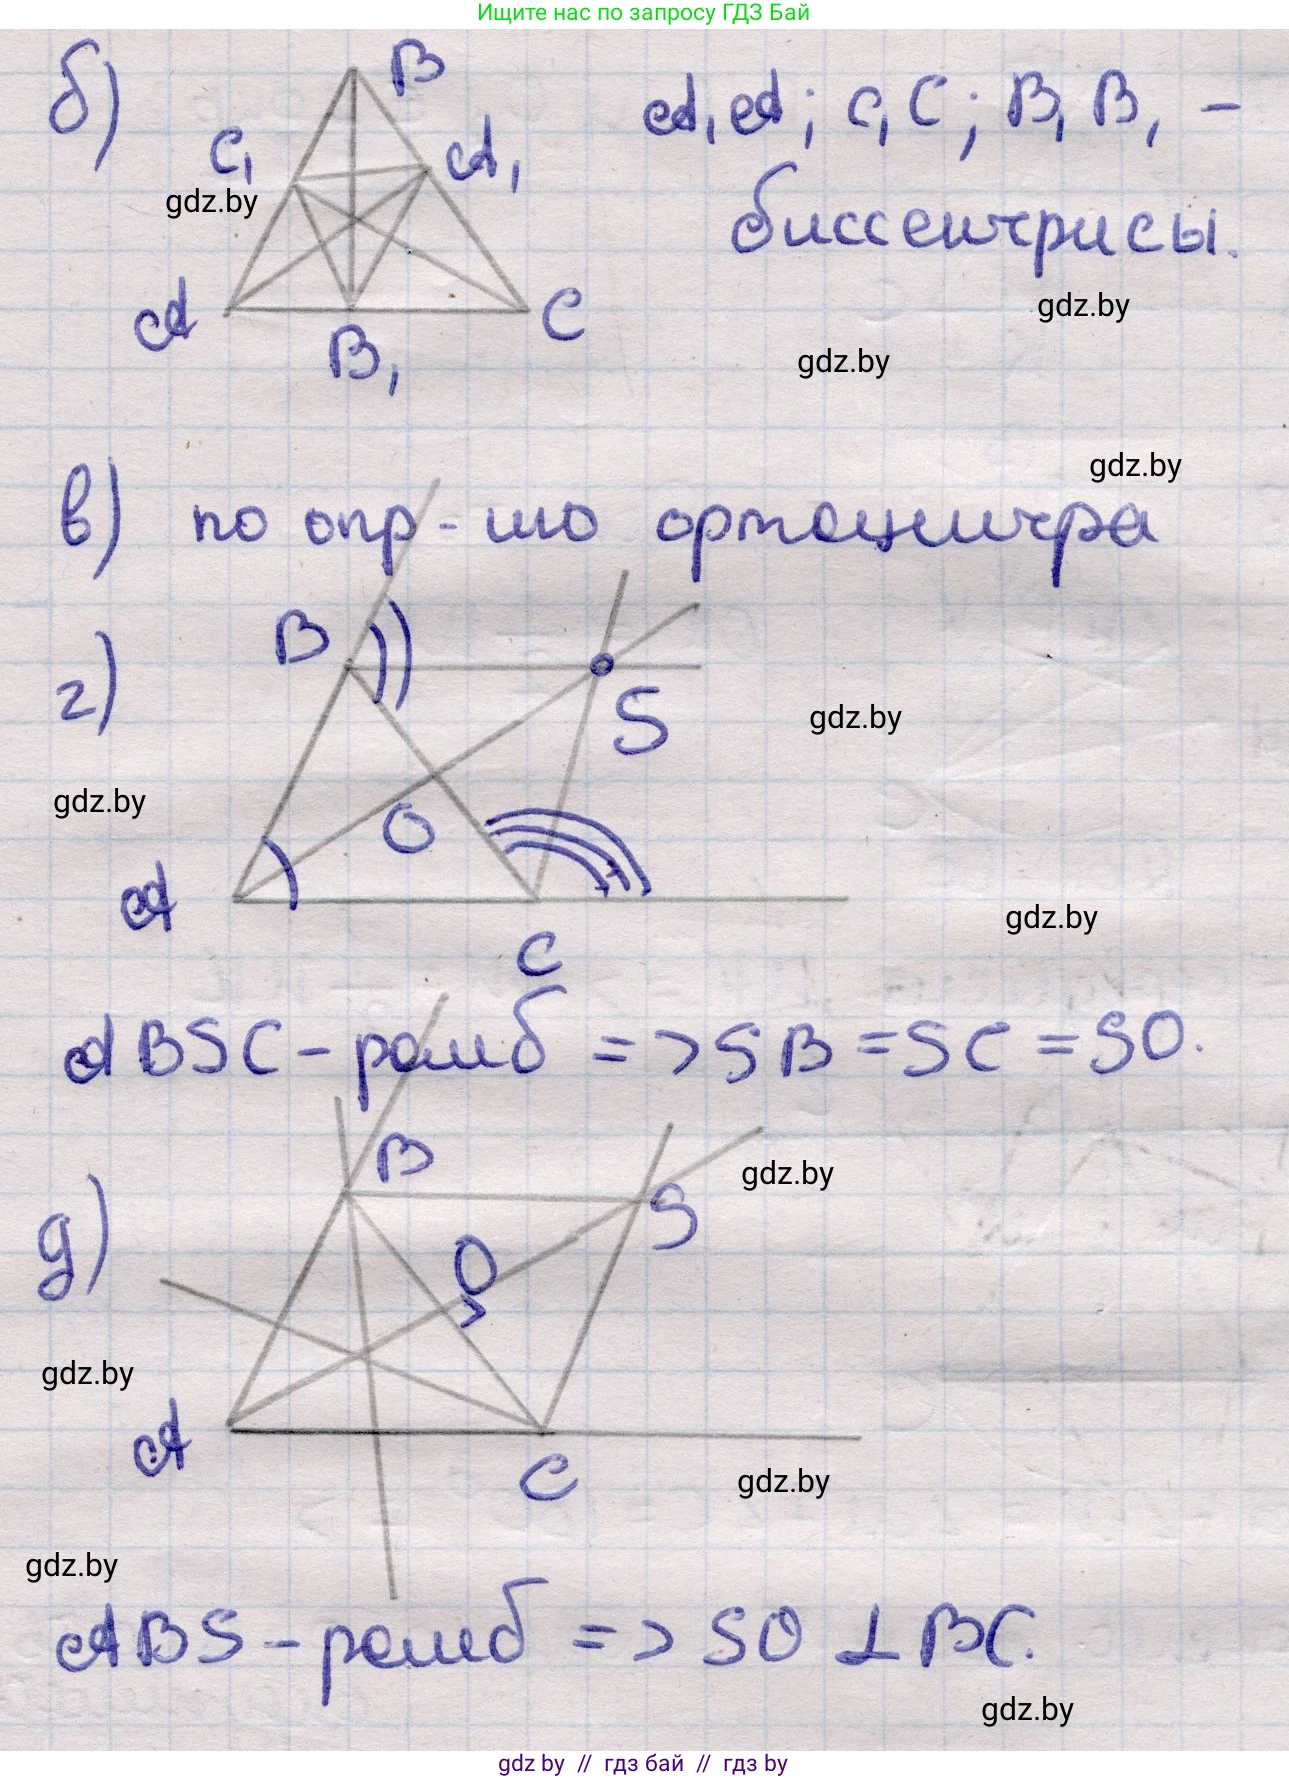 Ищите нас по запросу ГДЗ Бай
б)
B
C₁
A₁
A
B₁
C
A₁A; C₁C; B₁B₁ –
биссектрисы.
gdz.by
gdz.by
gdz.by
gdz.by
в) по опр-ию ортоцентра
г)
B
S
O
A
C
gdz.by
gdz.by
gdz.by
ABSC – ромб => SB = SC = SO.
д)
B
S
O
A
C
gdz.by
gdz.by
gdz.by
gdz.by
ABS – ромб => SO ⊥ BC.
gdz.by
gdz by // гдз бай // гдз by